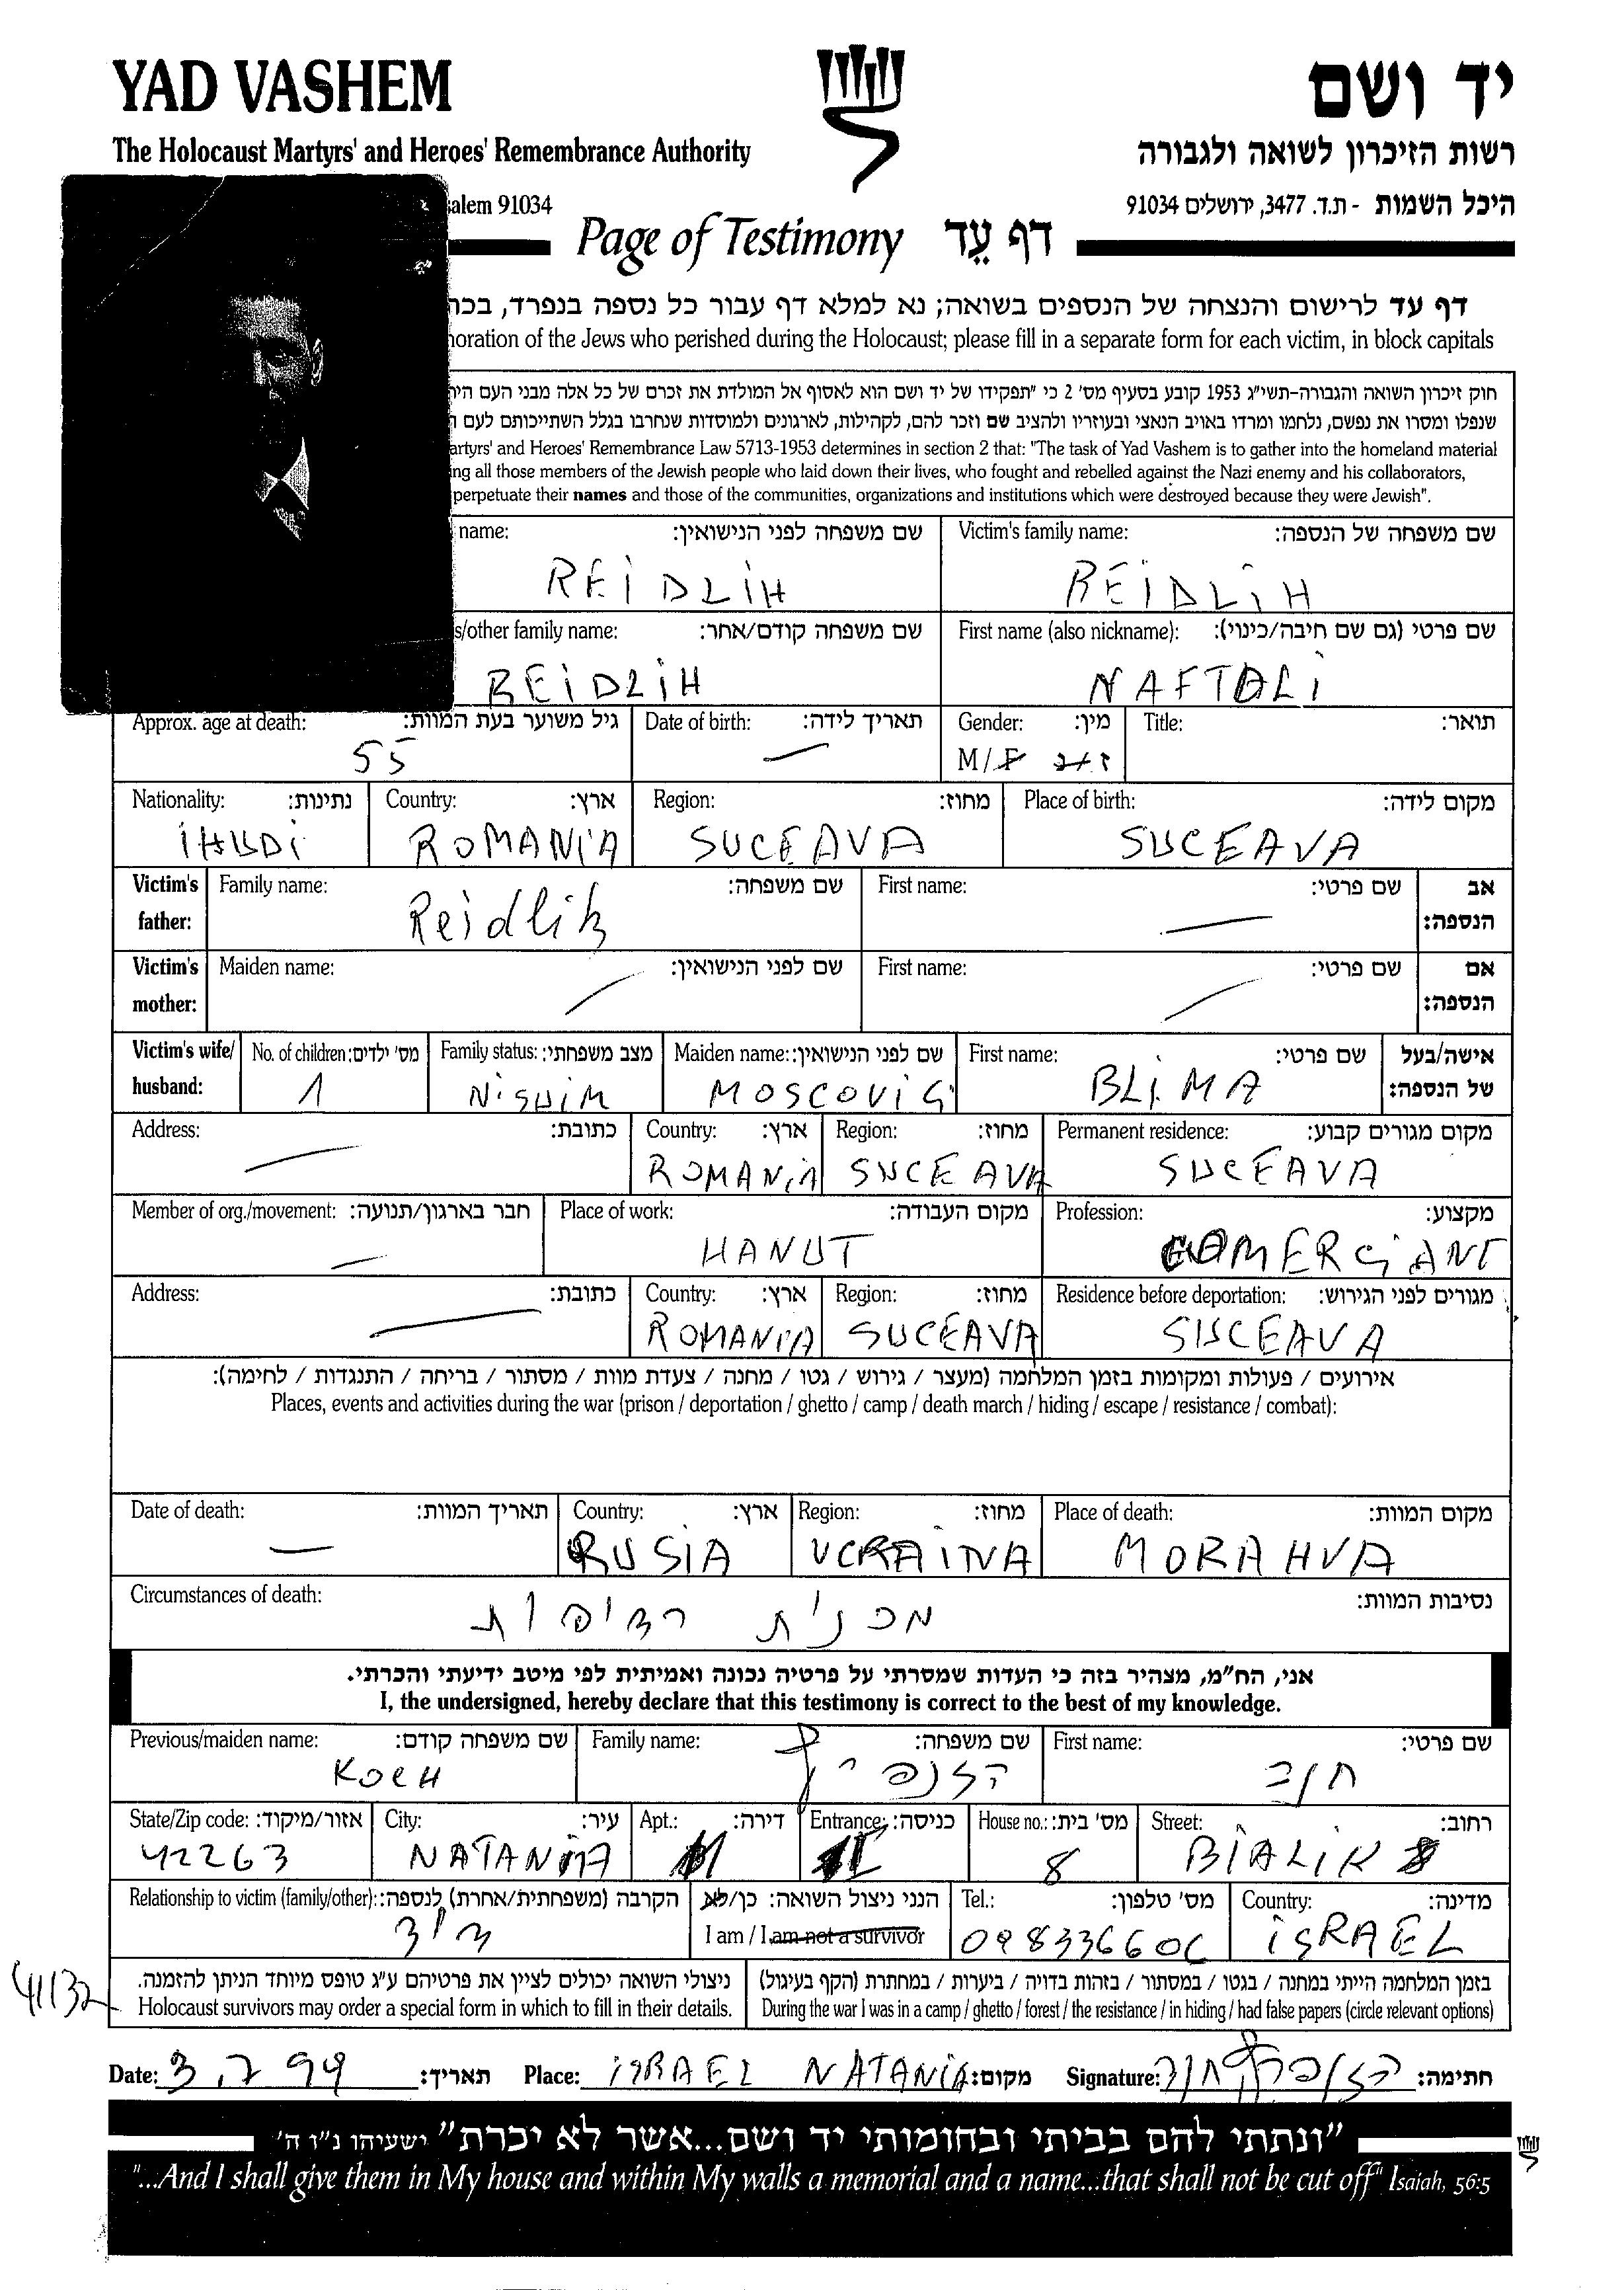 YAD VASHEM
יד ושם
The Holocaust Martyrs' and Heroes' Remembrance Authority
רשות הזיכרון לשואה ולגבורה
salem 91034
היכל השמות - ת.ד. 3477, ירושלים 91034
Page of Testimony דף עֵד
דף עד לרישום והנצחה של הנספים בשואה; נא למלא דף עבור כל נספה בנפרד, בכת
noration of the Jews who perished during the Holocaust; please fill in a separate form for each victim, in block capitals
חוק זיכרון השואה והגבורה-תשי"ג 1953 קובע בסעיף מס' 2 כי "תפקידו של יד ושם הוא לאסוף אל המולדת את זכרם של כל אלה מבני העם היה
שנפלו ומסרו את נפשם, נלחמו ומרדו באויב הנאצי ובעוזריו ולהציב שם וזכר להם, לקהילות, לארגונים ולמוסדות שנחרבו בגלל השתייכותם לעם ה
artyrs' and Heroes' Remembrance Law 5713-1953 determines in section 2 that: "The task of Yad Vashem is to gather into the homeland material
ing all those members of the Jewish people who laid down their lives, who fought and rebelled against the Nazi enemy and his collaborators,
perpetuate their names and those of the communities, organizations and institutions which were destroyed because they were Jewish".
name: שם משפחה לפני הנישואין: Victim's family name: שם משפחה של הנספה:
REIDLIH REIDLIH
s/other family name: שם משפחה קודם/אחר: First name (also nickname): שם פרטי (גם שם חיבה/כינוי):
REIDLIH NAFTOLI
Approx. age at death: גיל משוער בעת המוות: Date of birth: תאריך לידה: Gender: מין: Title: תואר:
55 — M/F ז/נ
Nationality: נתינות: Country: ארץ: Region: מחוז: Place of birth: מקום לידה:
IHUDI ROMANIA SUCEAVA SUCEAVA
Victim's father: Family name: שם משפחה: First name: שם פרטי: אב הנספה:
Reidlih —
Victim's mother: Maiden name: שם לפני הנישואין: First name: שם פרטי: אם הנספה:
Victim's wife/ husband: No. of children: מס' ילדים: Family status: מצב משפחתי: Maiden name: שם לפני הנישואין: First name: שם פרטי: אישה/בעל של הנספה:
1 NiSUiM MOSCOVIG BLIMA
Address: כתובת: Country: ארץ: Region: מחוז: Permanent residence: מקום מגורים קבוע:
ROMANIA SUCEAVA SUCEAVA
Member of org./movement: חבר בארגון/תנועה: Place of work: מקום העבודה: Profession: מקצוע:
HANUT COMERCIANT
Address: כתובת: Country: ארץ: Region: מחוז: Residence before deportation: מגורים לפני הגירוש:
ROMANIA SUCEAVA SUCEAVA
אירועים / פעולות ומקומות בזמן המלחמה (מעצר / גירוש / גטו / מחנה / צעדת מוות / מסתור / בריחה / התנגדות / לחימה):
Places, events and activities during the war (prison / deportation / ghetto / camp / death march / hiding / escape / resistance / combat):
Date of death: תאריך המוות: Country: ארץ: Region: מחוז: Place of death: מקום המוות:
— RUSIA UCRAINA MORAHVA
Circumstances of death: נסיבות המוות:
מכנית רדיפות
אני, הח"מ, מצהיר בזה כי העדות שמסרתי על פרטיה נכונה ואמיתית לפי מיטב ידיעתי והכרתי.
I, the undersigned, hereby declare that this testimony is correct to the best of my knowledge.
Previous/maiden name: שם משפחה קודם: Family name: שם משפחה: First name: שם פרטי:
KOCH חוה
State/Zip code: אזור/מיקוד: City: עיר: Apt.: דירה: Entrance: כניסה: House no.: מס' בית: Street: רחוב:
42263 NATANIA 8 BIALIK
Relationship to victim (family/other): הקרבה (משפחתית/אחרת) לנספה: הנני ניצול השואה: כן/לא Tel.: מס' טלפון: Country: מדינה:
I am / I am not a survivor
דוד 098336606 ISRAEL
בזמן המלחמה הייתי במחנה / בגטו / במסתור / בזהות בדויה / ביערות / במחתרת (הקף בעיגול)
During the war I was in a camp / ghetto / forest / the resistance / in hiding / had false papers (circle relevant options)
ניצולי השואה יכולים לציין את פרטיהם ע"ג טופס מיוחד הניתן להזמנה.
Holocaust survivors may order a special form in which to fill in their details.
41132
Date: 3.7 99 תאריך: Place: ISRAEL NATANIA מקום: Signature: חתימה:
"ונתתי להם בביתי ובחומותי יד ושם...אשר לא יכרת" ישעיהו נ"ו ה'
"...And I shall give them in My house and within My walls a memorial and a name...that shall not be cut off" Isaiah, 56:5